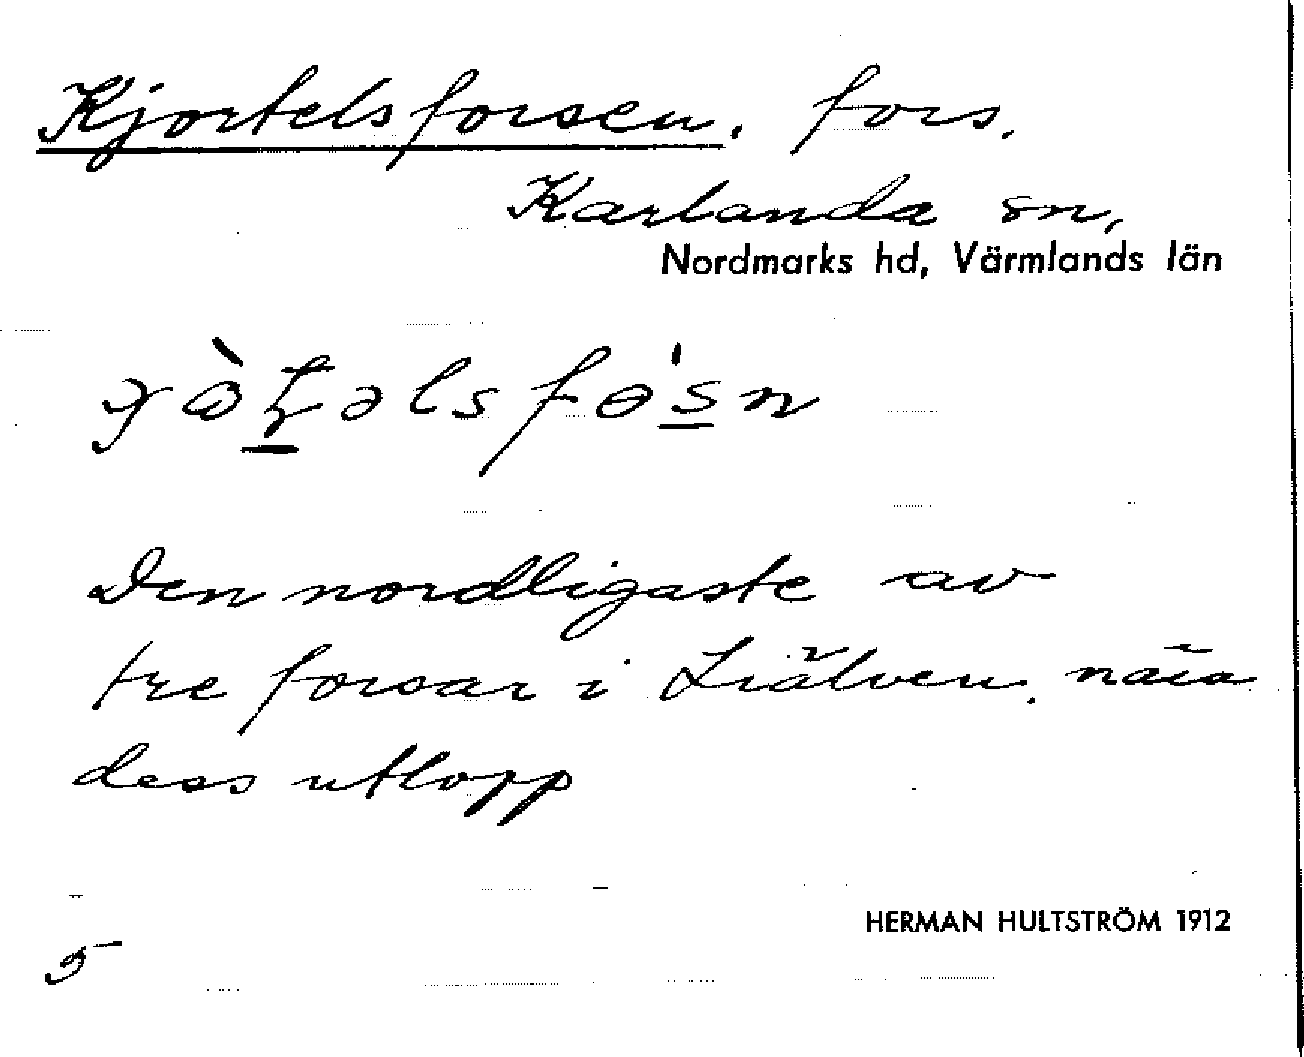 Kjortelsforsen. fors.
Karlanda sn,
Nordmarks hd, Värmlands län
Den nordligaste av
tre forsar i Liälven. nära
dess utlopp
HERMAN HULTSTRÖM 1912
5